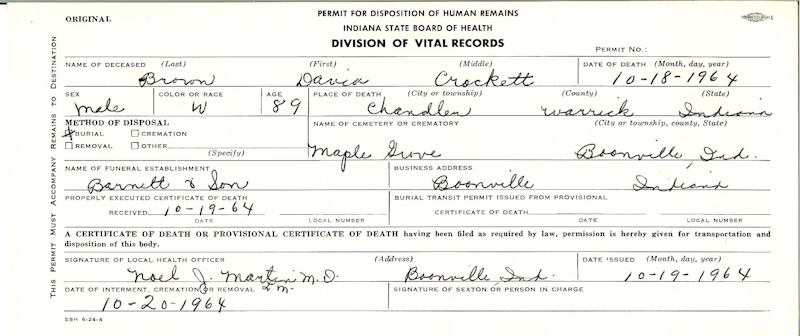 ORIGINAL
PERMIT FOR DISPOSITION OF HUMAN REMAINS
INDIANA STATE BOARD OF HEALTH
DIVISION OF VITAL RECORDS
PERMIT NO.:
THIS PERMIT MUST ACCOMPANY REMAINS TO DESTINATION
NAME OF DECEASED (Last) (First) (Middle) DATE OF DEATH (Month, day, year)
Brown David Crockett 10-18-1964
SEX COLOR OR RACE AGE PLACE OF DEATH (City or township) (County) (State)
male W 89 Chandler Warrick Indiana
METHOD OF DISPOSAL NAME OF CEMETERY OR CREMATORY (City or township, county, State)
BURIAL CREMATION
REMOVAL OTHER
(Specify)
Maple Grove Boonville, Ind.
NAME OF FUNERAL ESTABLISHMENT BUSINESS ADDRESS
Barnett & Son Boonville Indiana
PROPERLY EXECUTED CERTIFICATE OF DEATH BURIAL TRANSIT PERMIT ISSUED FROM PROVISIONAL
RECEIVED 10-19-64 CERTIFICATE OF DEATH
DATE LOCAL NUMBER DATE LOCAL NUMBER
A CERTIFICATE OF DEATH OR PROVISIONAL CERTIFICATE OF DEATH having been filed as required by law, permission is hereby given for transportation and
disposition of this body.
SIGNATURE OF LOCAL HEALTH OFFICER (Address) DATE ISSUED (Month, day, year)
Noel J. Martin M.D. Boonville, Ind. 10-19-1964
DATE OF INTERMENT, CREMATION OR REMOVAL SIGNATURE OF SEXTON OR PERSON IN CHARGE
10-20-1964
SBH 6-24-4